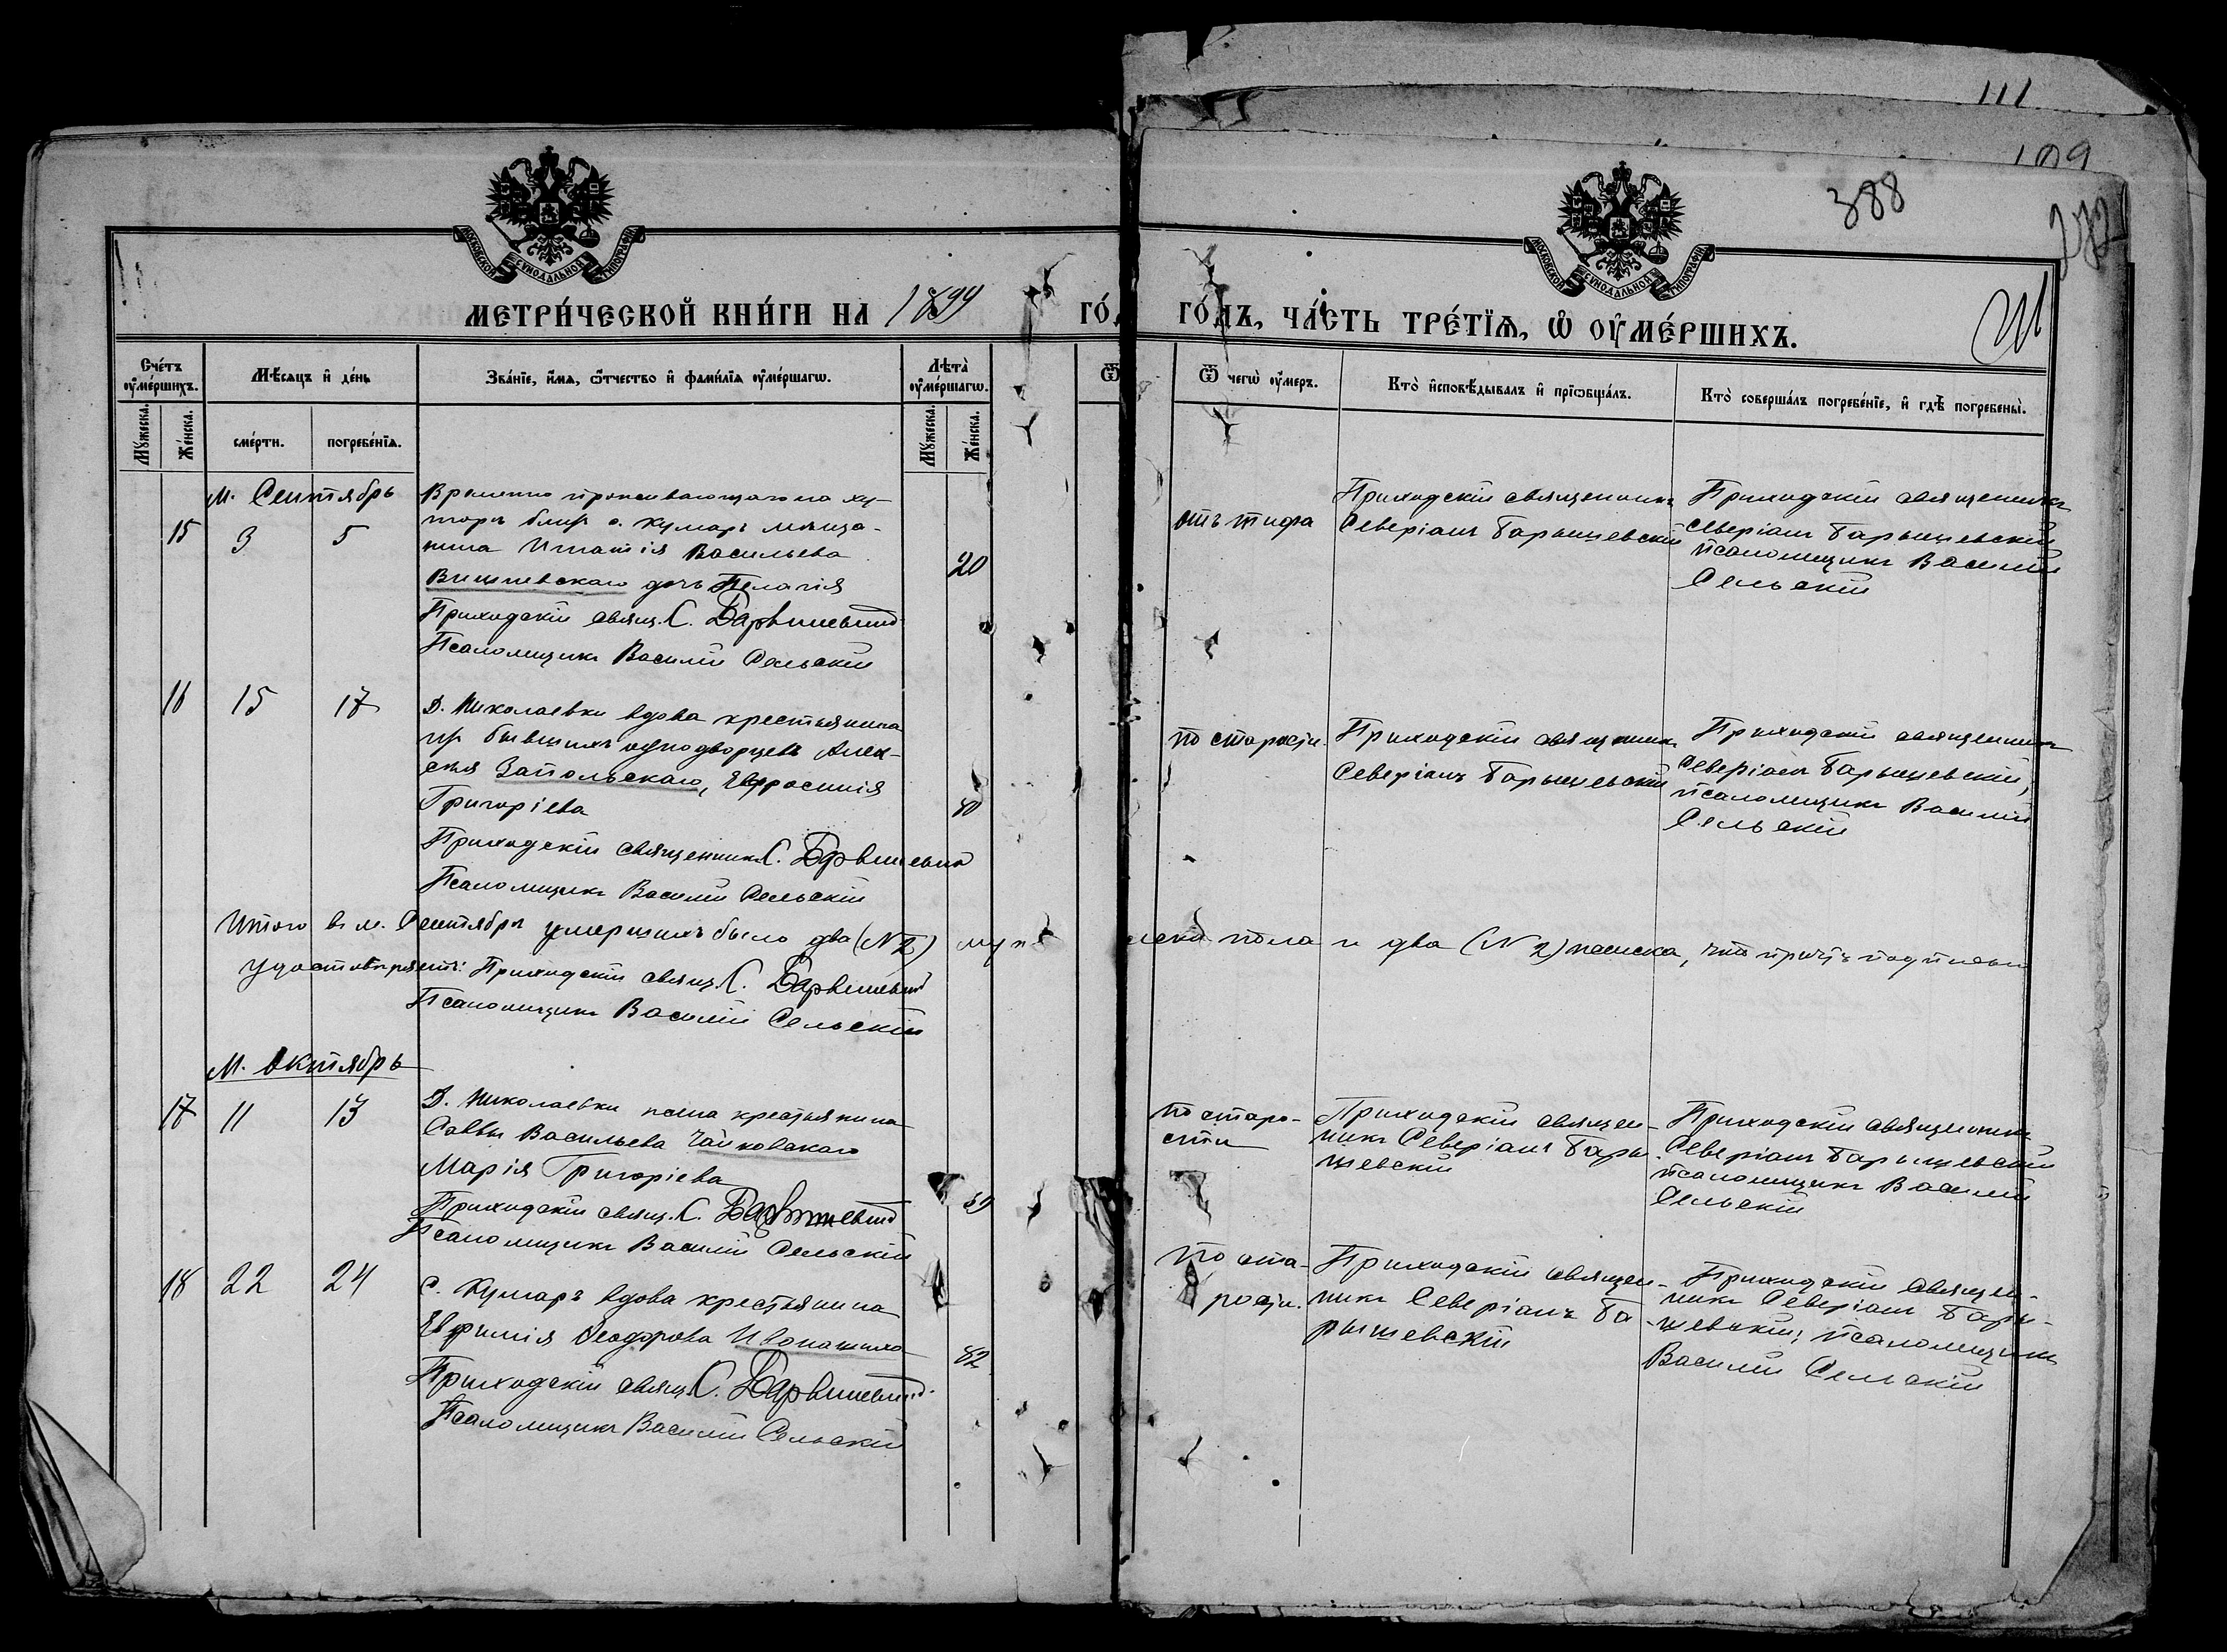 111
109
388
272
МОСКОВСКОЙ СѴНОДАЛЬНОЙ ТИПОГРАФІИ
МОСКОВСКОЙ СѴНОДАЛЬНОЙ ТИПОГРАФІИ
МЕТРИ́ЧЕСКОЙ КНИ́ГИ НА 1899 ГО́Д
ГО́ДЪ, ЧА́СТЬ ТРЕ́ТЇѦ, Ѡ҆ ОУ҆МЕ́РШИХЪ.
Сче́тъ оу҆ме́ршихъ.
Мѣ́сяцъ и҆ де́нь
Зва́нїе, и҆́мѧ, ѻ҆́тчество и҆ фами́лїѧ оу҆ме́ршагѡ.
Лѣта̀ оу҆ме́ршагѡ.
Ѿ чегѡ̀ оу҆́меръ.
Кто̀ и҆сповѣ́дывалъ и҆ прїѡбща́лъ.
Кто̀ соверша́лъ погребе́нїе, и҆ гдѣ̀ погребены̀.
Мꙋ́жеска.
Же́нска.
сме́рти.
погребе́нїѧ.
Мꙋ́жеска.
Же́нска.
м. Сентябрь
15 3 5
Временно проживающаго на ху-
торѣ близъ с. Кумаръ мѣща-
нина Игнатія Васильева
Вишневскаго дочь Пелагія
20
Приходскій свящ. С. Барышевскій
Псаломщикъ Василій Сельскій
отъ тифа
Приходскій священникъ
Северіанъ Барышевскій
Приходскій священникъ
Северіанъ Барышевскій
псаломщикъ Василій
Сельскій
16 15 17
Д. Николаевки вдова крестьянина
изъ бывшихъ однодворцевъ Алек-
сѣя Запольскаго, Евфросинія
Григоріева
80
Приходскій священникъ С. Барышевскій
Псаломщикъ Василій Сельскій
по старости.
Приходскій священникъ
Северіанъ Барышевскій
Приходскій священникъ
Северіанъ Барышевскій,
псаломщикъ Василій
Сельскій
Итого въ м. Сентябрѣ умершихъ было два (№ 2) муж
ского пола и два (№ 2) женска, что причтъ подписью
удостовѣряетъ: Приходскій свящ. С. Барышевскій
Псаломщикъ Василій Сельскій
М. Октябрь
17 11 13
Д. Николаевки жена крестьянина
Саввы Васильева Чайковскаго
Марія Григоріева
Приходскій свящ. С. Барышевскій
Псаломщикъ Василій Сельскій
по старо-
сти
Приходскій священ-
никъ Северіанъ Бары-
шевскій
Приходскій священникъ
Северіанъ Барышевскій
псаломщикъ Василій
Сельскій
18 22 24
С. Кумаръ вдова крестьянина
Евфимія Ѳеодорова
82
Приходскій свящ. С. Барышевскій
Псаломщикъ Василій Сельскій
по ста-
рости.
Приходскій священ-
никъ Северіанъ Ба-
рышевскій
Приходскій священ-
никъ Северіанъ Бары-
шевскій, псаломщикъ
Василій Сельскій